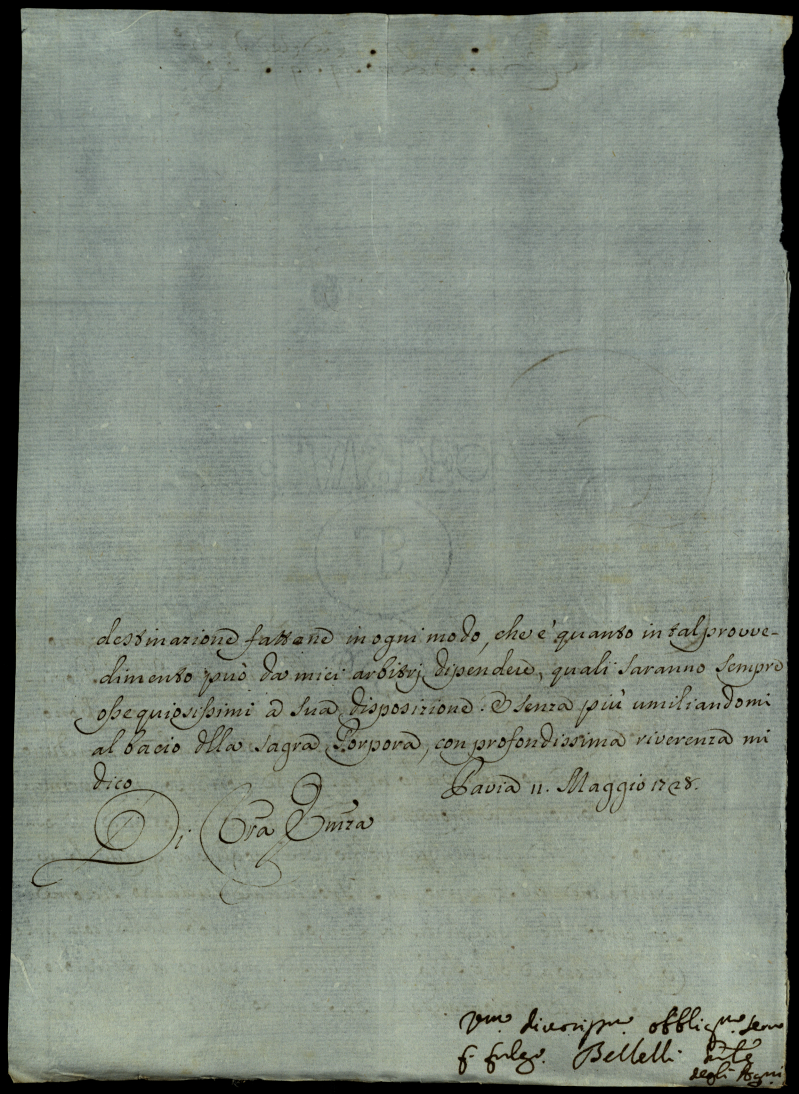 destinazione fattane in ogni modo, che è quanto in tal provve-
dimento può da miei arbitrj dipendere, quali saranno sempre
ossequiosissimi a sua disposizione. E senza più umiliandomi
al bacio dlla sagra Porpora, con profondissima riverenza mi
dico Pavia 11. Maggio 1728.
Di Vra Emza
Vmo divotissmo obbligmo Serve
f. fulgo. Bellelli
degli Agni